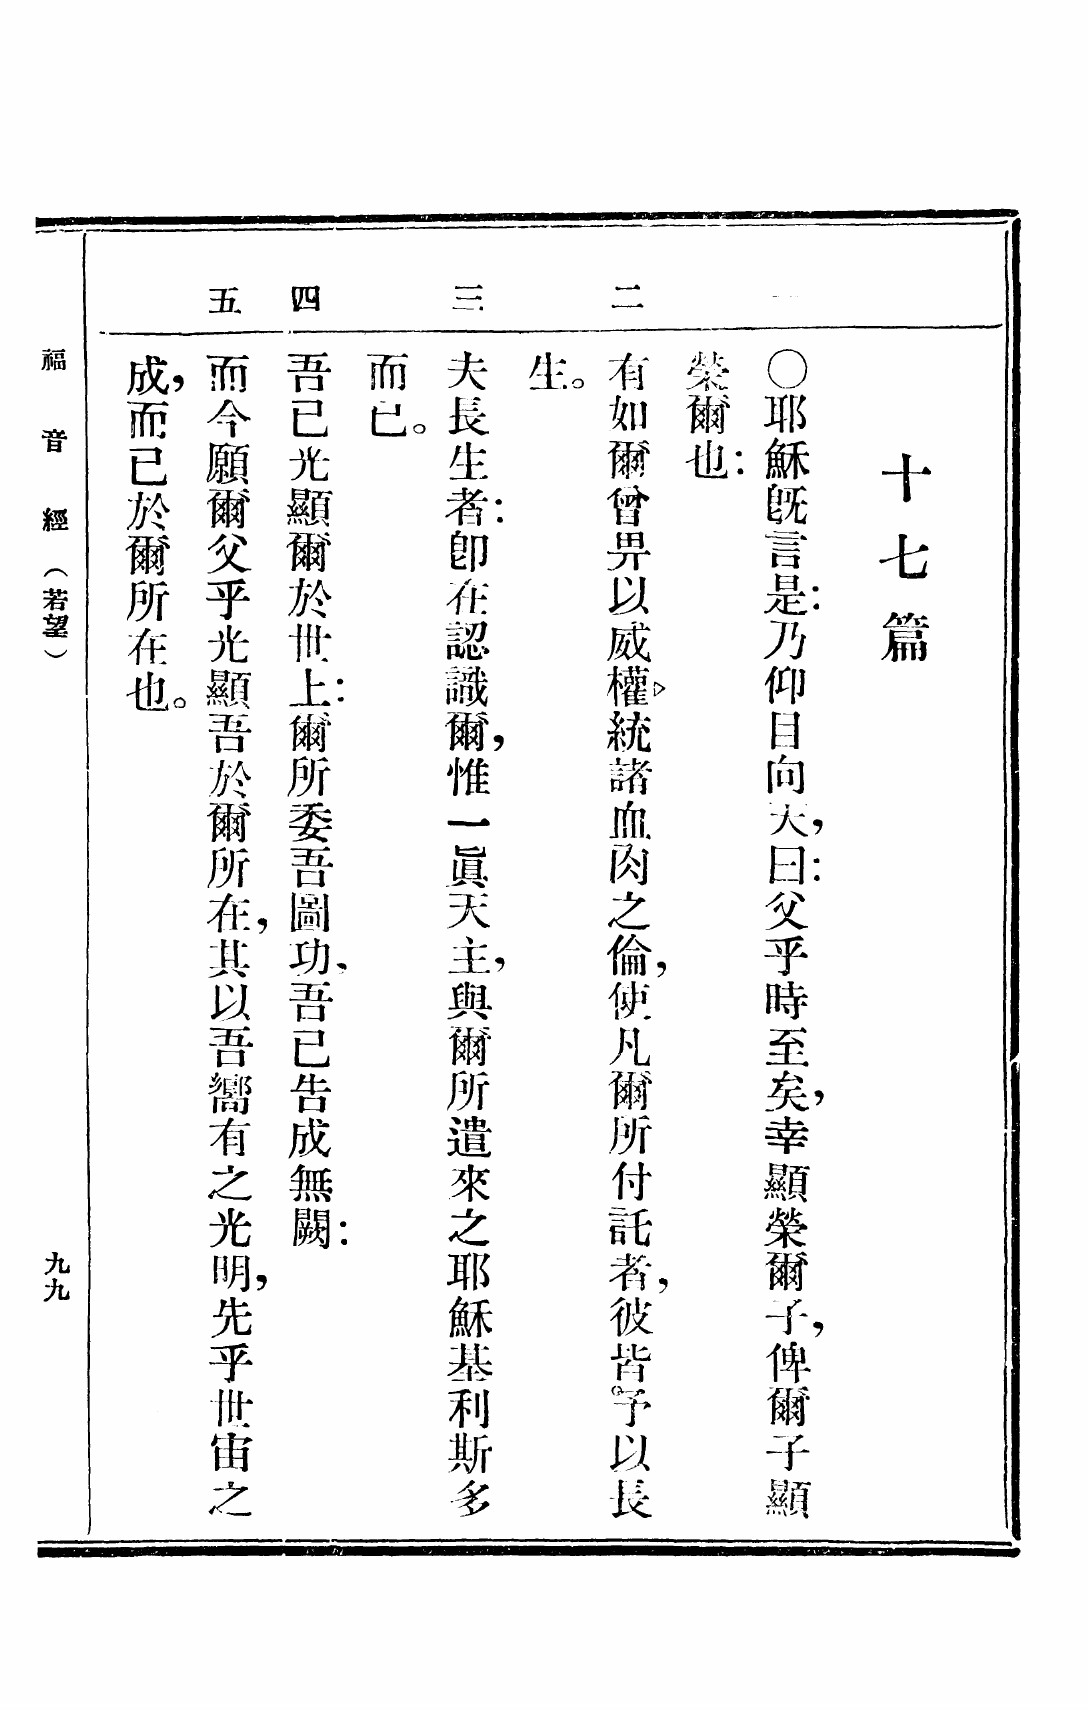 十七篇
一
〇耶穌旣言是：乃仰目向天，曰：父乎時至矣，幸顯榮爾子，俾爾子顯
榮爾也：
二
有如爾曾畀以威權，統諸血肉之倫，使凡爾所付託者，彼皆予以長
生。
三
夫長生者：卽在認識爾，惟一眞天主，與爾所遣來之耶穌基利斯多
而已。
四
吾已光顯爾於世上：爾所委吾圖功、吾已告成無闕：
五
而今願爾父乎光顯吾於爾所在，其以吾嚮有之光明，先乎世宙之
成，而已於爾所在也。
福音經（若望）
九九